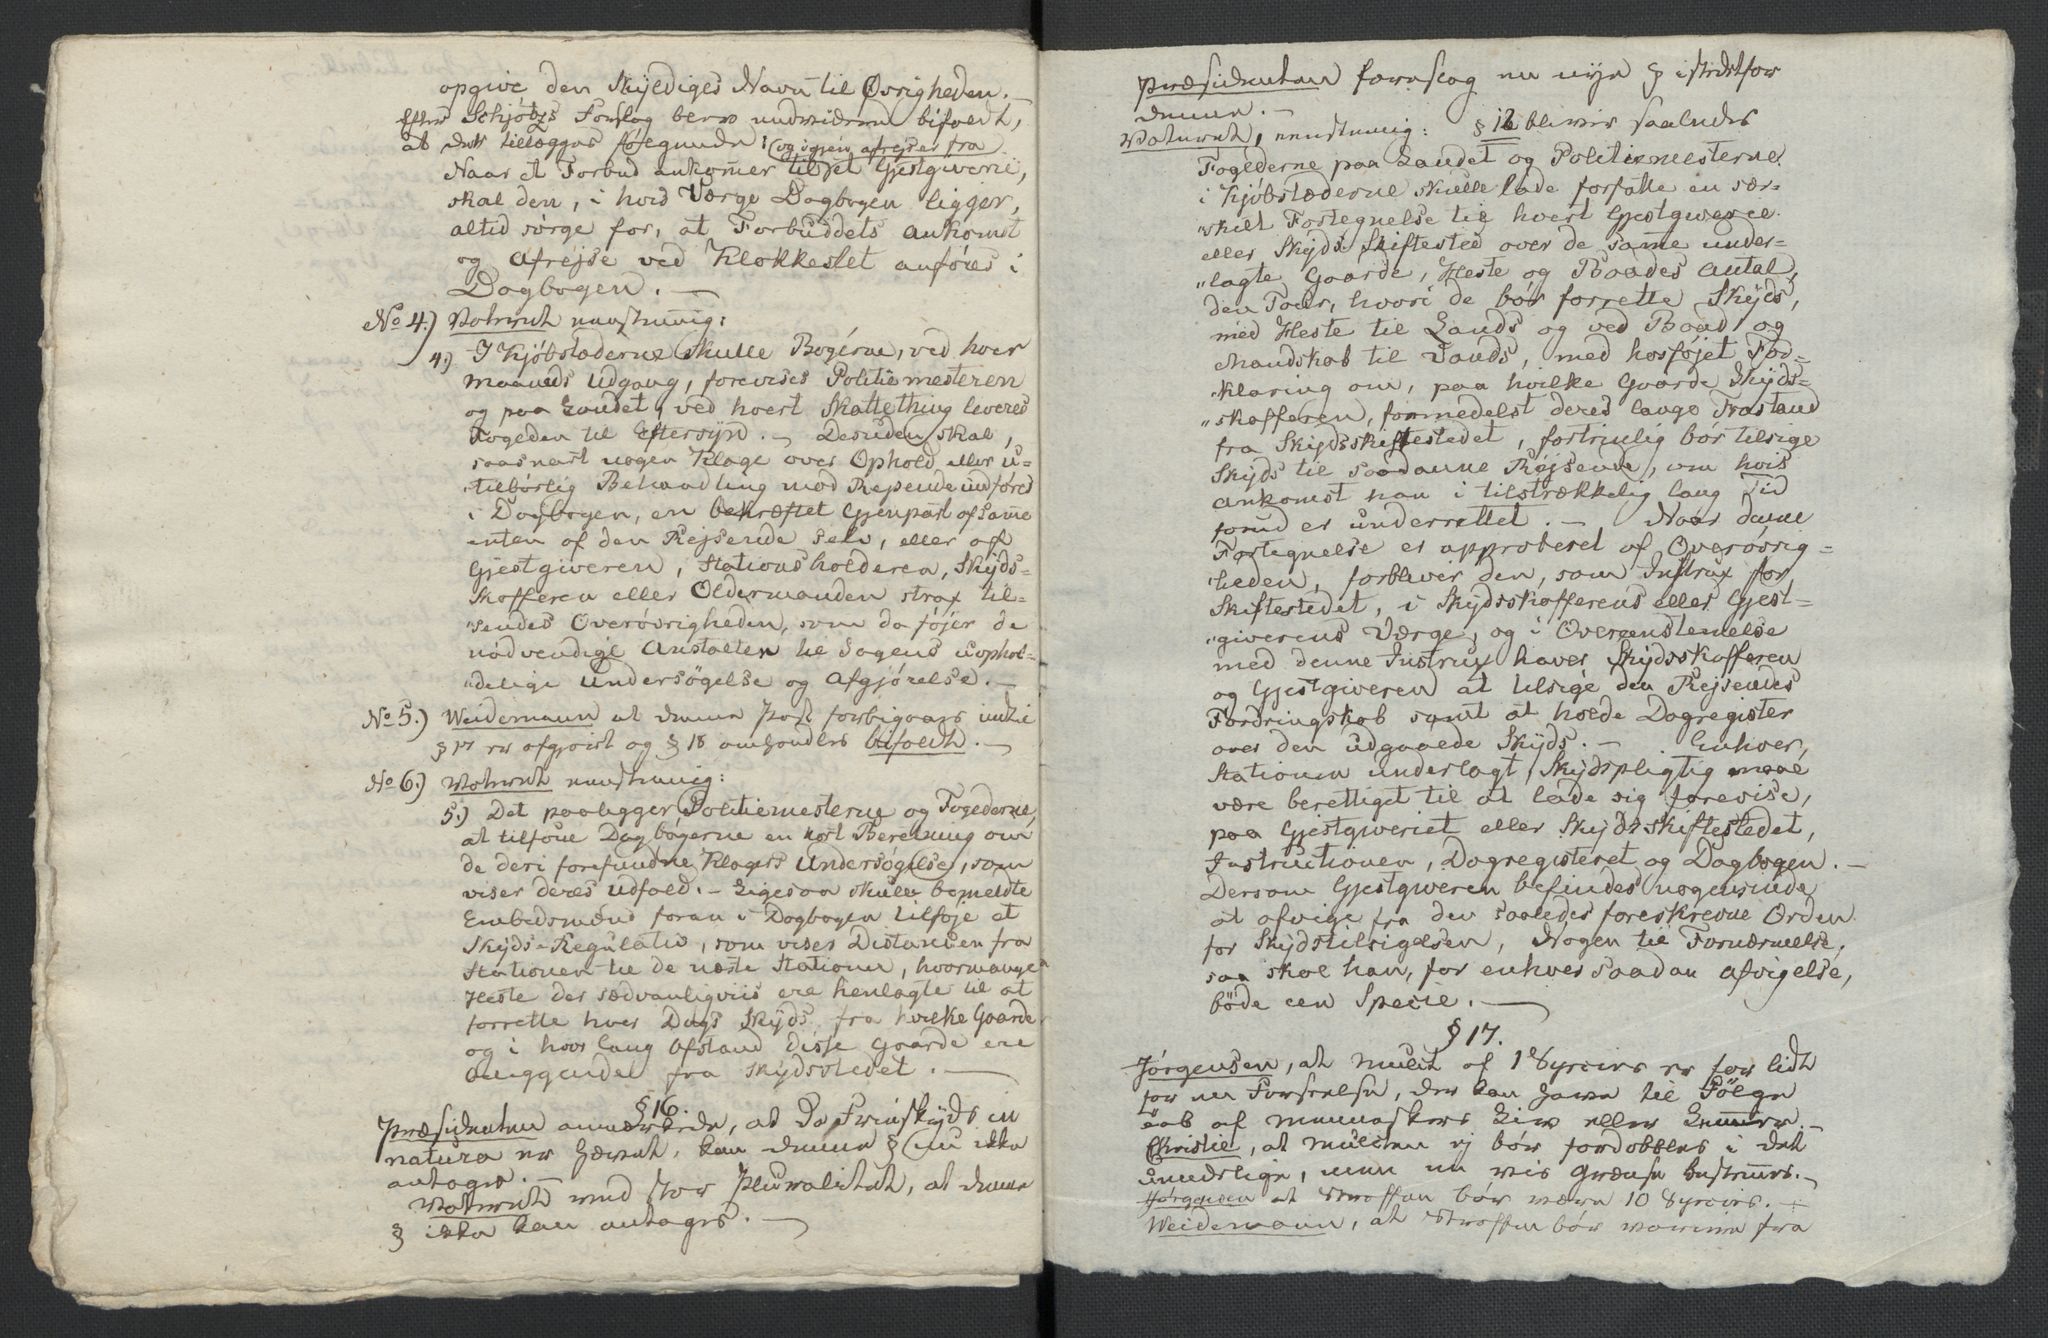 opgive den Skyldiges Navn til Øvrigheden. —
Efter Schjøtzs Forslag blev endvidere bifaldt,
at der tillægges følgende: (og igjen afrejser fra
Naar et Forbud ankomer til et Gjestgiverie,
skal den, i hvis Værge Dagbogen ligger,
altid sørge for, at Forbuddets Ankomst
og Afrejse ved Klokkeslet anføres i
Dagbogen. —
No 4.) Voterede eenstemig:
4.) I Kjøbstæderne skulle Bøgerne, ved hver
Maaneds Udgang, forevises Politiemesteren
og paa Landet, ved hvert Skattething leveres
Fogeden til Eftersyn. — Desuden skal,
saasnart nogen Klage over Ophold eller u-
„tilbørlig Behandling mod Rejsende indføres
i Dagbogen, en bekræftet Gjenpart af Same
enten af den Rejsende selv, eller af
Gjestgiveren, Stationsholderen, Skyds-
Skafferen eller Oldermanden strax til-
„sendes Overøvrigheden, som da føjer de
nødvendige Anstalter til Sagens uophol-
„delige Undersøgelse og Afgjørelse. —
No 5.) Weidemann at denne Post forbigaaes indtil
§ 17 er afgjort og § 18 omhandles bifaldt. —
No 6.) Voterede eenstemig:
5.) Det paaligger Politiemesterne og Fogederne,
at tilføie Dagbøgerne en kort Beretning om
de deri forefundne Klagers Undersøgelse, som
viser deres Udfald. — Ligesaa skulle bemeldte
Embedsmænd foran i Dagbogen tilføje et
Skyds-Regulativ, som viser Distancen fra
Stationen til de næste Stationer, hvormange
Heste der sædvanligviis ere henlagte til at
forrette hver Dags Skyds, fra hvilke Gaarde
og i hvor lang Afstand disse Gaarde ere
beliggende fra Skydsstedet. —
§ 16.
Præsidenten anmærkede, at da Friskyds in
natura er hævet, kan denne § nu ikke
antages. —
Voterede med stor Pluralitet, at denne
§ ikke kan antages. —
Præsidenten foreslog en nye § istedetfor
denne. —
Voterede, eenstemig: § 16 bliver saaledes
Fogederne paa Landet og Politiemesterne
i Kjøbstæderne skulle lade forfatte en sær-
„skilt Fortegnelse til hvert Gjestgiverie
eller Skyds Skiftested over de same under-
„lagte Gaarde, Heste og Baades Antal,
den Tour, hvori de bør forrette Skyds,
med Heste til Lands og ved Baad og
Mandskab til Vands, med hosføjet For-
„klaring om, paa hvilke Gaarde Skyds-
„skafferen, formedelst deres lange Frastand
fra Skydsskiftestedet, fortrinlig bør tilsige
Skyds til saadanne Rejsende, om hvis
Ankomst han i tilstrækkelig lang Tid
forud er underrettet. — Naar denne
Fortegnelse er approberet af Overøvrig-
„heden, forbliver den, som Instrux for
Skiftestedet, i Skydsskafferens eller Gjest-
„giverens Værge, og i Overeenstemelse
med denne Instrux haver Skydsskafferen
og Gjestgiveren at tilsige den Rejsendes
Fordringskab samt at holde Dagregister
over den udgaaede Skyds. — Enhver,
Stationen underlagt Skydspligtig maae
være berettiget til at lade sig forevise,
paa Gjestgiveriet eller Skydsskiftestedet,
Instructionen, Dagregisteret og Dagbogen. —
Dersom Gjestgiveren befindes nogensinde
at afvige fra den saaledes foreskrevne Orden
for Skydstilsigelsen, Nogen til Fornærmelse,
saa skal han, for enhver saadan Afvigelse,
bøde een Specie. —
§ 17.
Jørgensen, at Mulct af 1 Species er for lidt
for en Forseelse, der kan have til Følge
Tab af Menneskers Liv eller Lemmer. —
Christie, at Mulcten ej bør fordobbles i det
uendelige, men en vis Grændse bestemes. —
Jørgensen at Straffen bør være 10 Species. —
Weidemann, at Straffen bør variere fra